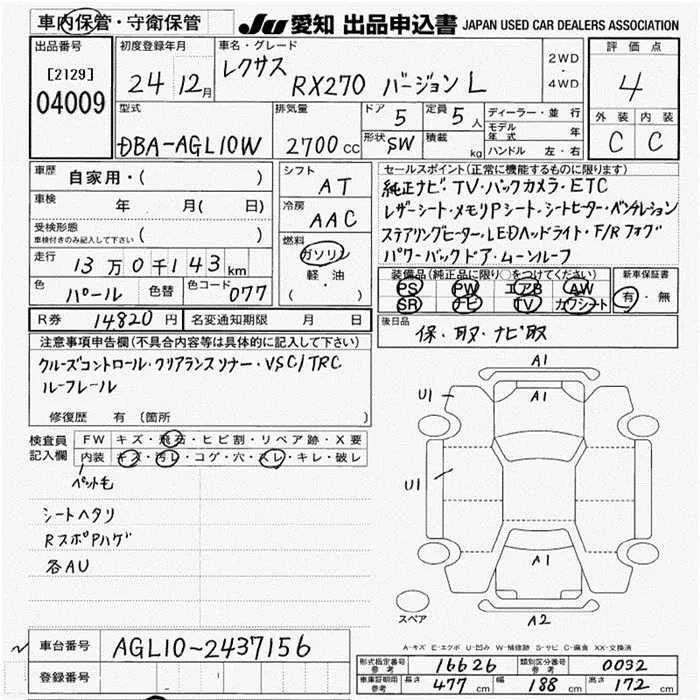 車内保管・守衛保管
JU 愛知 出品申込書 JAPAN USED CAR DEALERS ASSOCIATION
出品番号
[2129]
04009
初度登録年月
24 12月
車名・グレード
レクサス RX270 バージョンL
2WD
・
4WD
評価点
4
外装 内装
C C
型式
DBA-AGL10W
排気量
2700 cc
ドア 5
形状 SW
定員 5人
積載 kg
ディーラー・並行
モデル年式 年
ハンドル 左・右
車歴
自家用・( )
車検 年 月( 日)
受検形態
車検付きのみ記入して下さい ( )
走行 13万0千143km
色 パール 色替 色コード 077
シフト
AT
冷房
AAC
燃料
ガソリン
軽・油
( )
セールスポイント(正常に機能するものに限ります)
純正ナビ・TV・バックカメラ・ETC
レザーシート・メモリPシート・シートヒーター・ベンチレーション
ステアリングヒーター・LEDヘッドライト・F/Rフォグ
パワーバックドア・ムーンルーフ
装備品(純正品に限り○をつけてください)
PS PW エアB AW
SR ナビ TV カワシート
新車保証書
有・無
R券 14820円 名変通知期限 月 日
後日品
保・取・ナビ取
注意事項申告欄(不具合内容等は具体的に記入して下さい)
クルーズコントロール・クリアランスソナー・VSC/TRC
ルーフレール
修復歴 有(箇所 )
検査員記入欄
FW キズ・飛石・ヒビ割・リペア跡・X要
内装 キズ・汚レ・コゲ・穴・スレ・キレ・破レ
ペット毛
シートヘタリ
RスポPハゲ
各AU
A1
U1 A1
U1
A1
スペア
A2
A-キズ E-エクボ U-凹み W-補修跡 S-サビ C-腐食 XX-交換済
車台番号 AGL10-2437156
登録番号
形式指定番号参考 16626 類別区分番号参考 0032
車庫証明用参考 長さ 477cm 幅 188cm 高さ 172cm